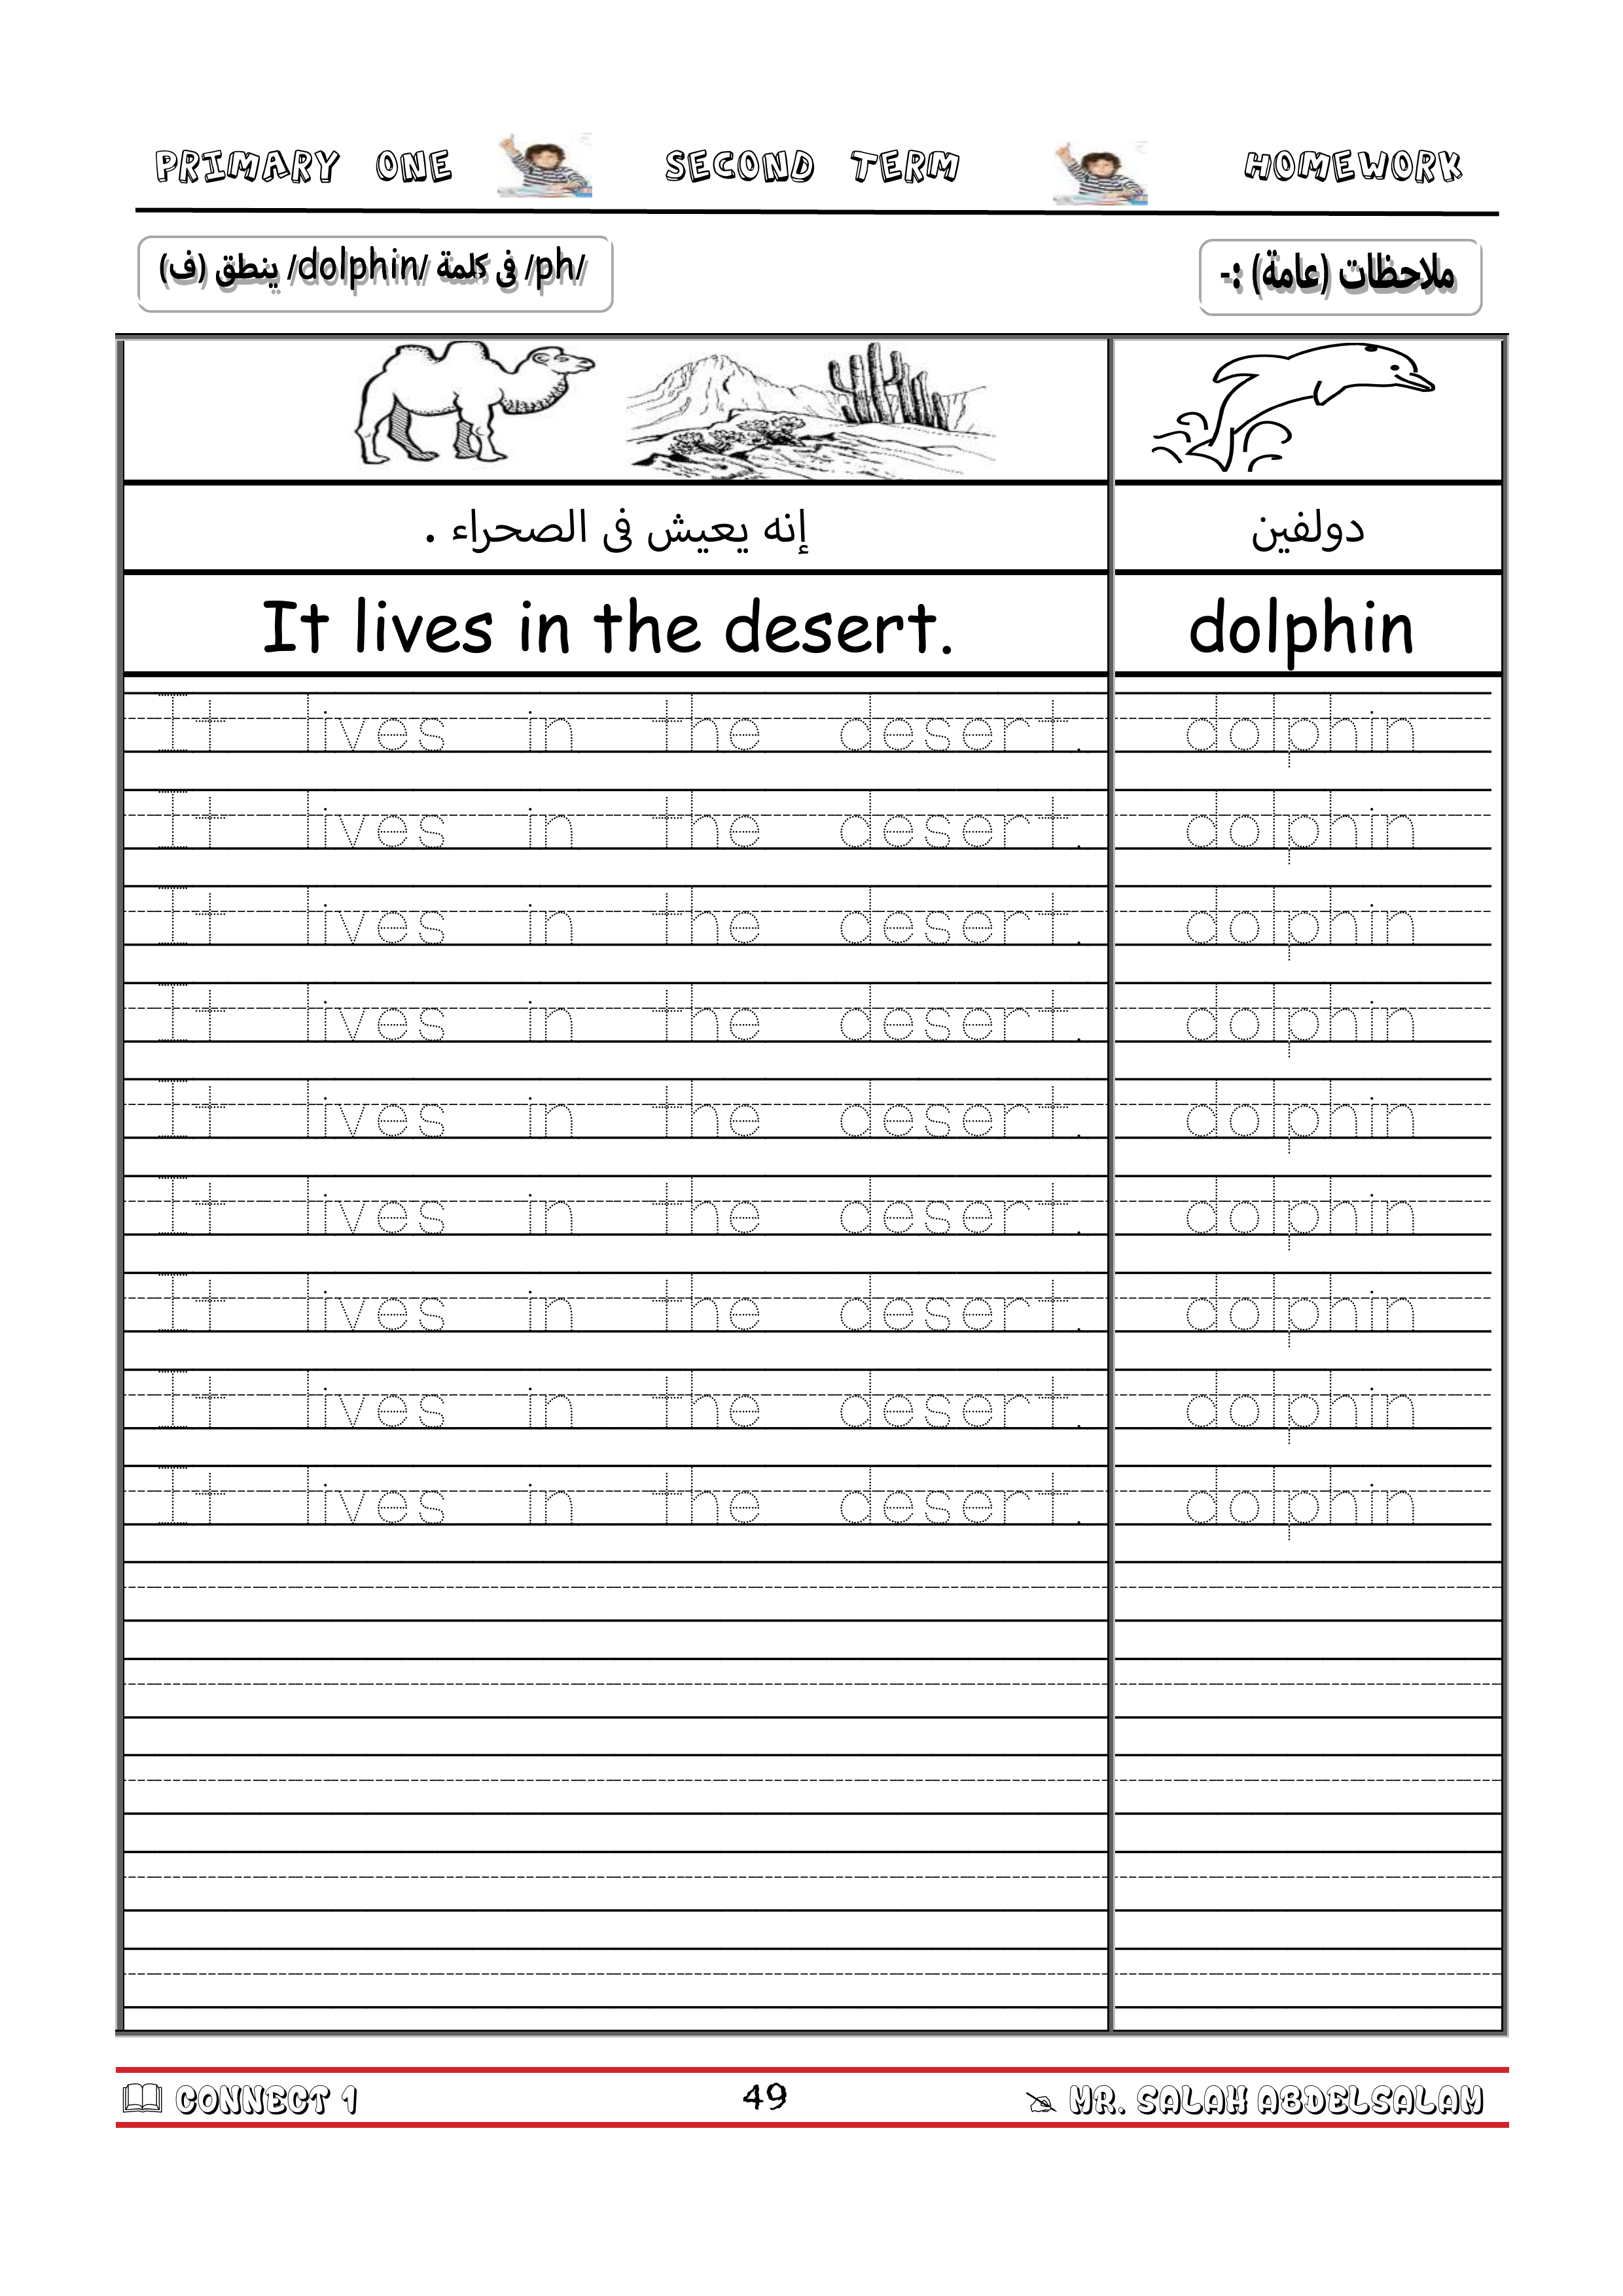 PRIMARY ONE SECOND TERM HOMEWORK
ملاحظات (عامة) :-
/ph/ فى كلمة /dolphin/ ينطق (ف)
إنه يعيش فى الصحراء . دولفين
It lives in the desert. dolphin
It lives in the desert. dolphin
It lives in the desert. dolphin
It lives in the desert. dolphin
It lives in the desert. dolphin
It lives in the desert. dolphin
It lives in the desert. dolphin
It lives in the desert. dolphin
It lives in the desert. dolphin
It lives in the desert. dolphin
CONNECT 1 49 MR. SALAH ABDELSALAM